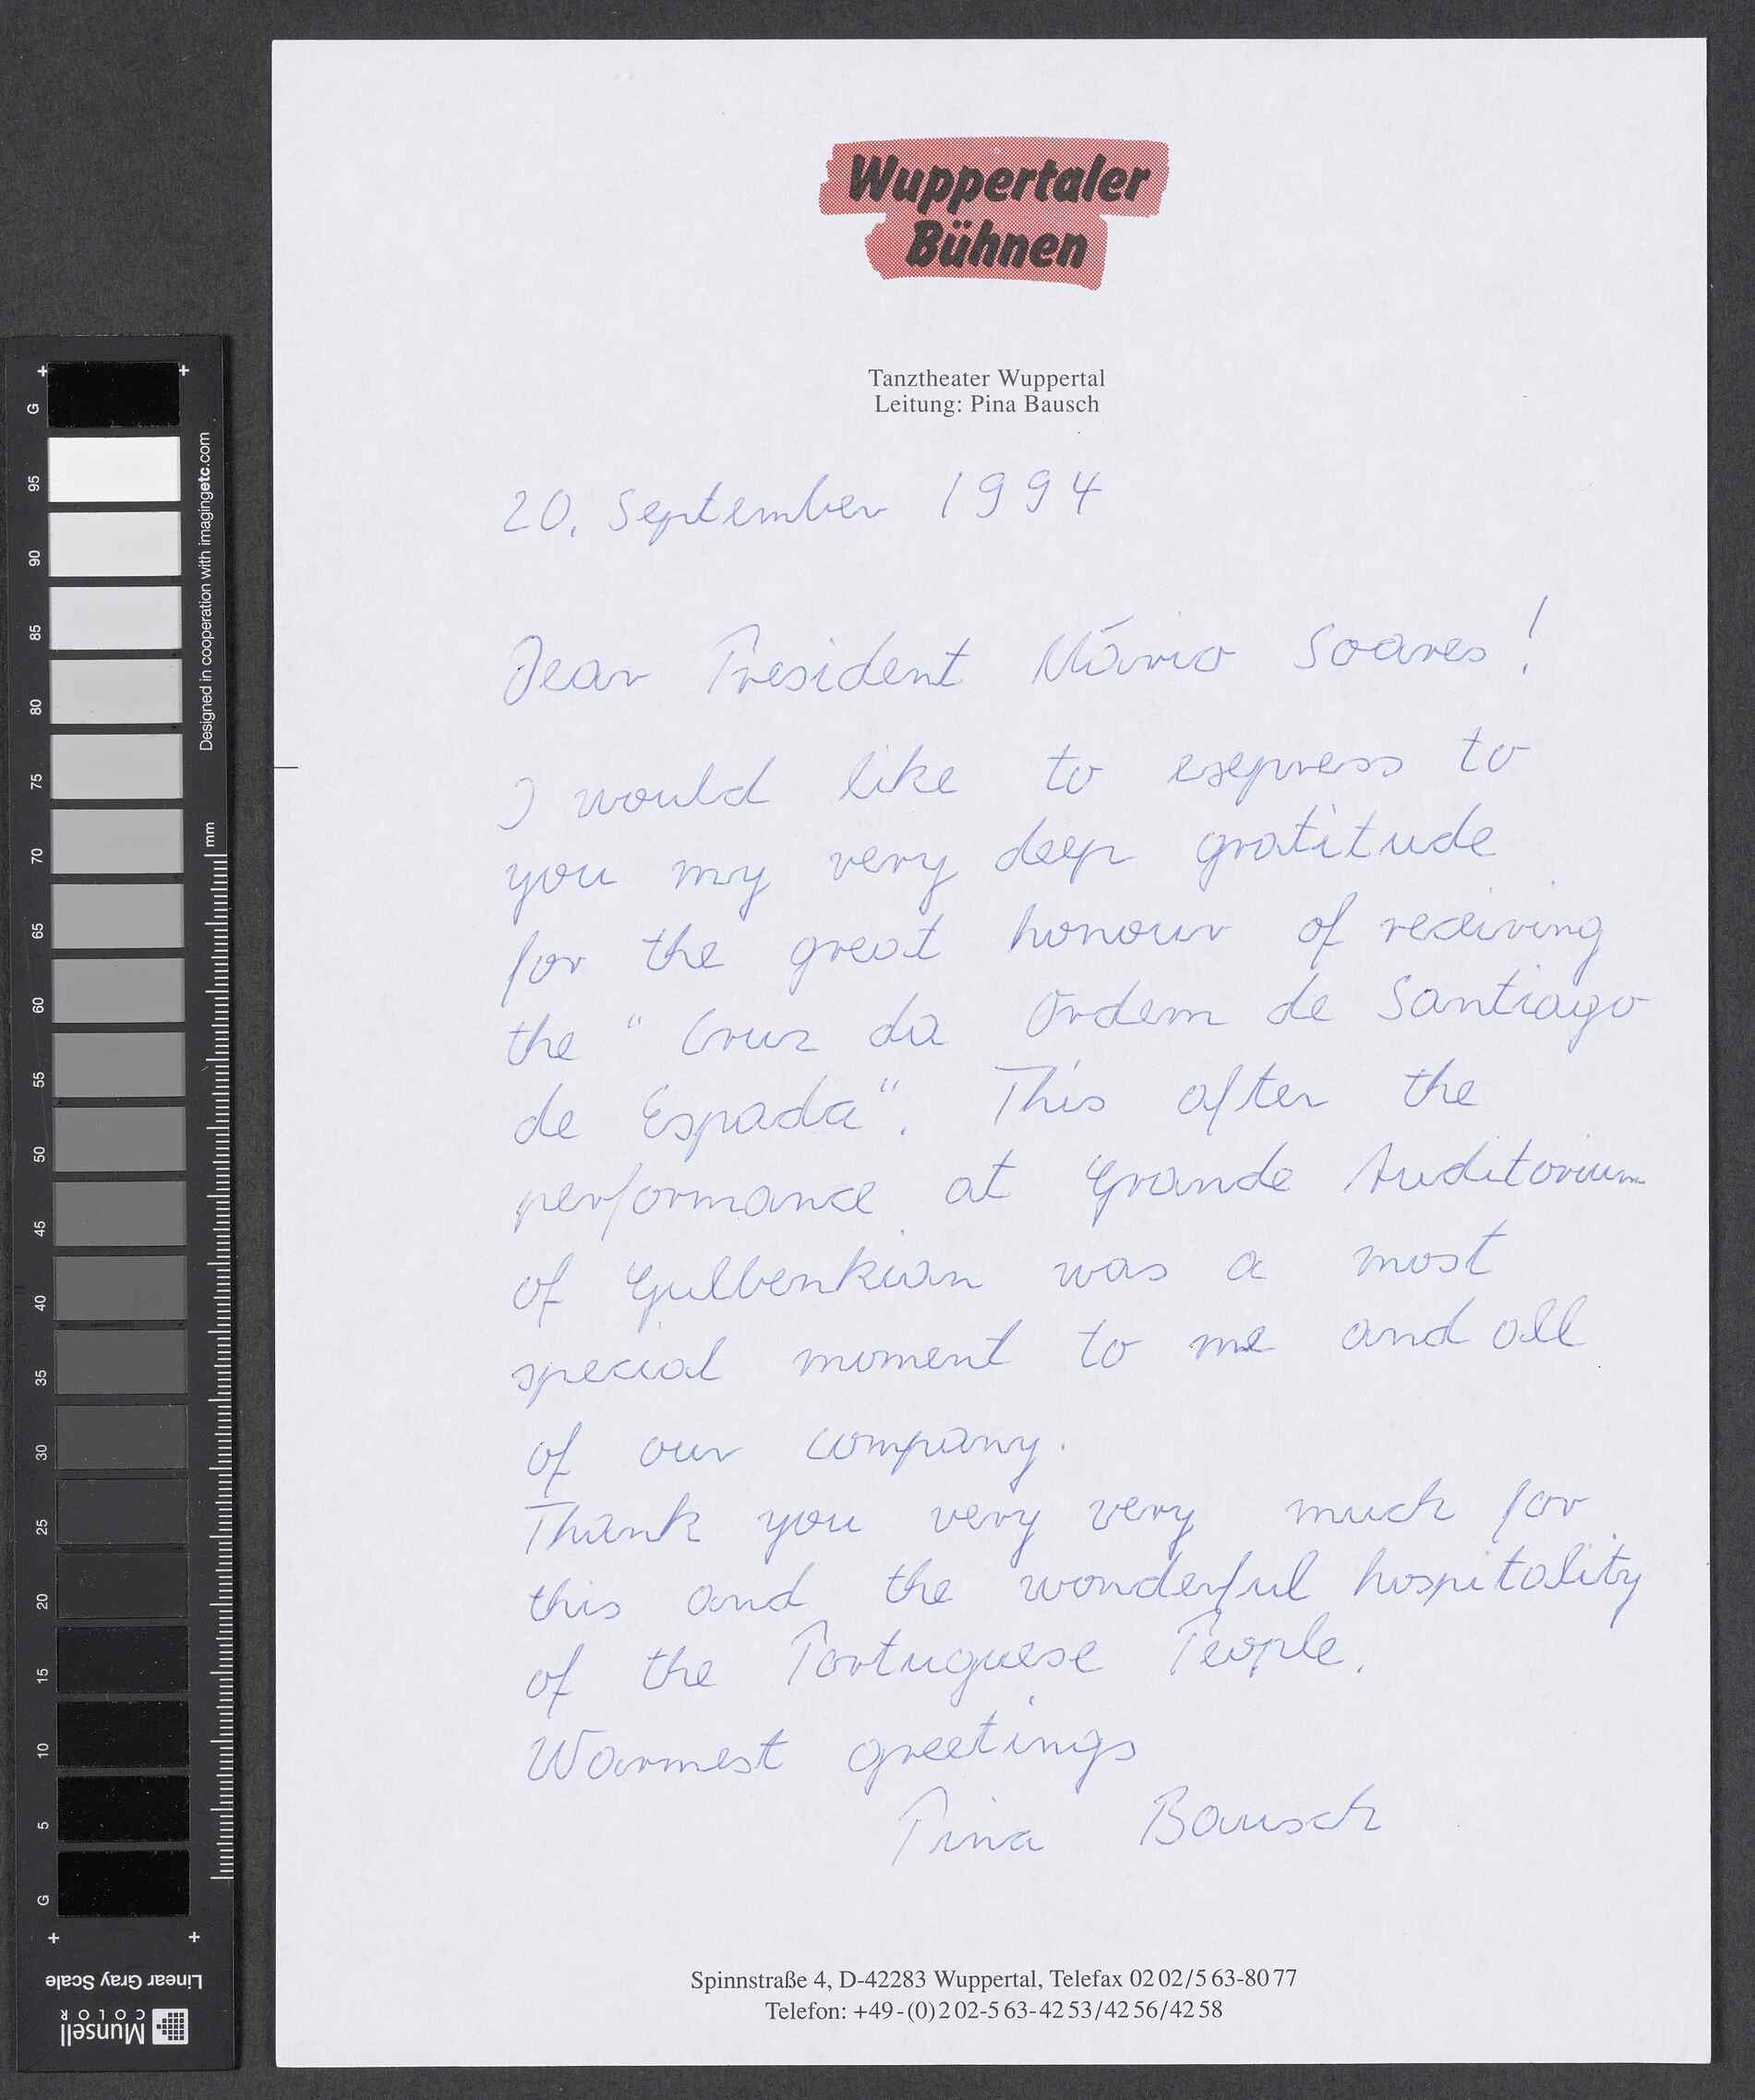 Wuppertaler
Bühnen
Tanztheater Wuppertal
Leitung: Pina Bausch
20. September 1994
Dear President Mário Soares!
I would like to express to
you my very deep gratitude
for the great honour of receiving
the "Cruz da Ordem de Santiago
de Espada". This after the
performance at Grande Auditorium
of Gulbenkian was a most
special moment to me and all
of our company.
Thank you very very much for
this and the wonderful hospitality
of the Portuguese People.
Warmest greetings
Pina Bausch
Spinnstraße 4, D-42283 Wuppertal, Telefax 02 02/5 63-80 77
Telefon: +49-(0)2 02-5 63-42 53/42 56/42 58
G
95
90
85
80
75
70
65
60
55
50
45
40
35
30
25
20
15
10
5
G
Designed in cooperation with imagingetc.com
mm
Linear Gray Scale
Munsell
COLOR